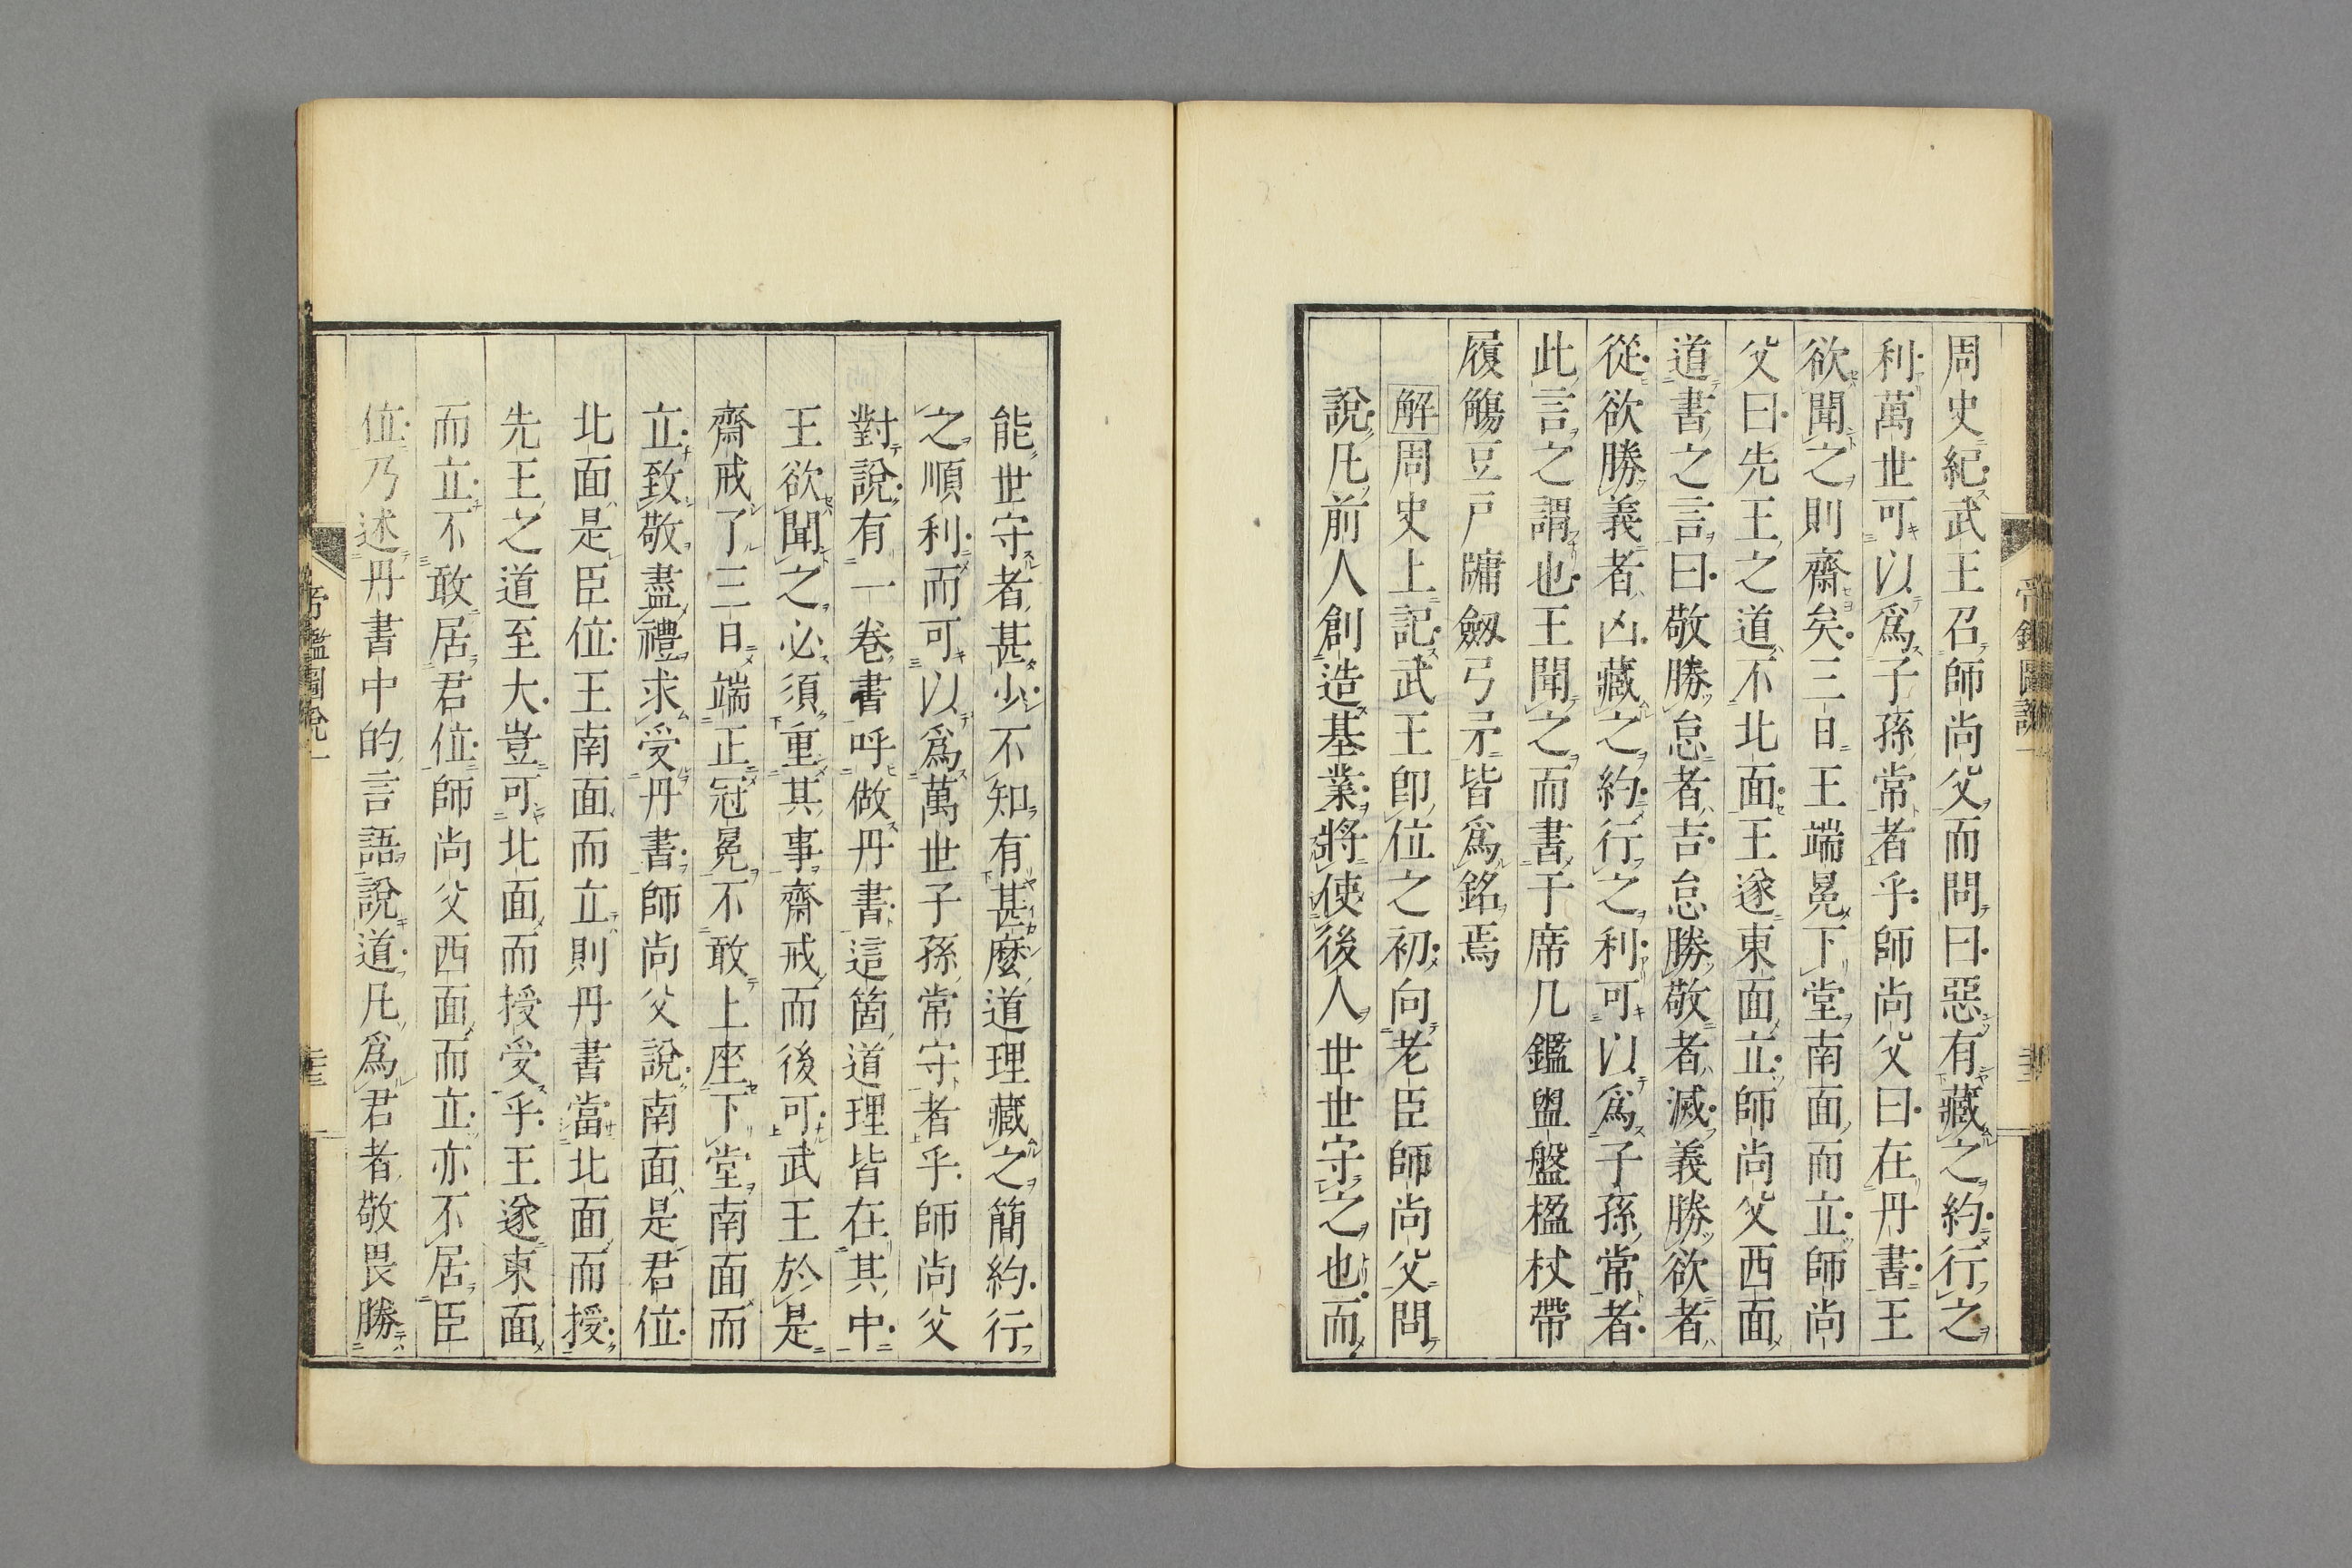 周史紀武王召師尚父而問曰惡有藏之約行之
利萬世可以爲子孫常者乎師尚父曰在丹書王
欲聞之則齋矣三日王端冕下堂南面而立師尚
父曰先王之道不北面王遂東面立師尚父西面
道書之言曰敬勝怠者吉怠勝敬者滅義勝欲者
從欲勝義者凶藏之約行之利可以爲子孫常者
此言之謂也王聞之而書于席几鑑盥盤楹杖帶
履觴豆戶牖劒弓矛皆爲銘焉
解周史上記武王即位之初向老臣師尚父問
說凡前人創造基業將使後人世世守之也而
能世守者甚少不知有甚麼道理藏之簡約行
之順利而可以爲萬世子孫常守者乎師尚父
對說有一卷書呼做丹書這箇道理皆在其中
王欲聞之必須重其事齋戒而後可武王於是
齋戒了三日端正冠冕不敢上座下堂南面而
立致敬盡禮求受丹書師尚父說南面是君位
北面是臣位王南面而立則丹書當北面而授
先王之道至大豈可北面而授受乎王遂東面
而立不敢居君位師尚父西面而立亦不居臣
位乃述丹書中的言語說道凡爲君者敬畏勝